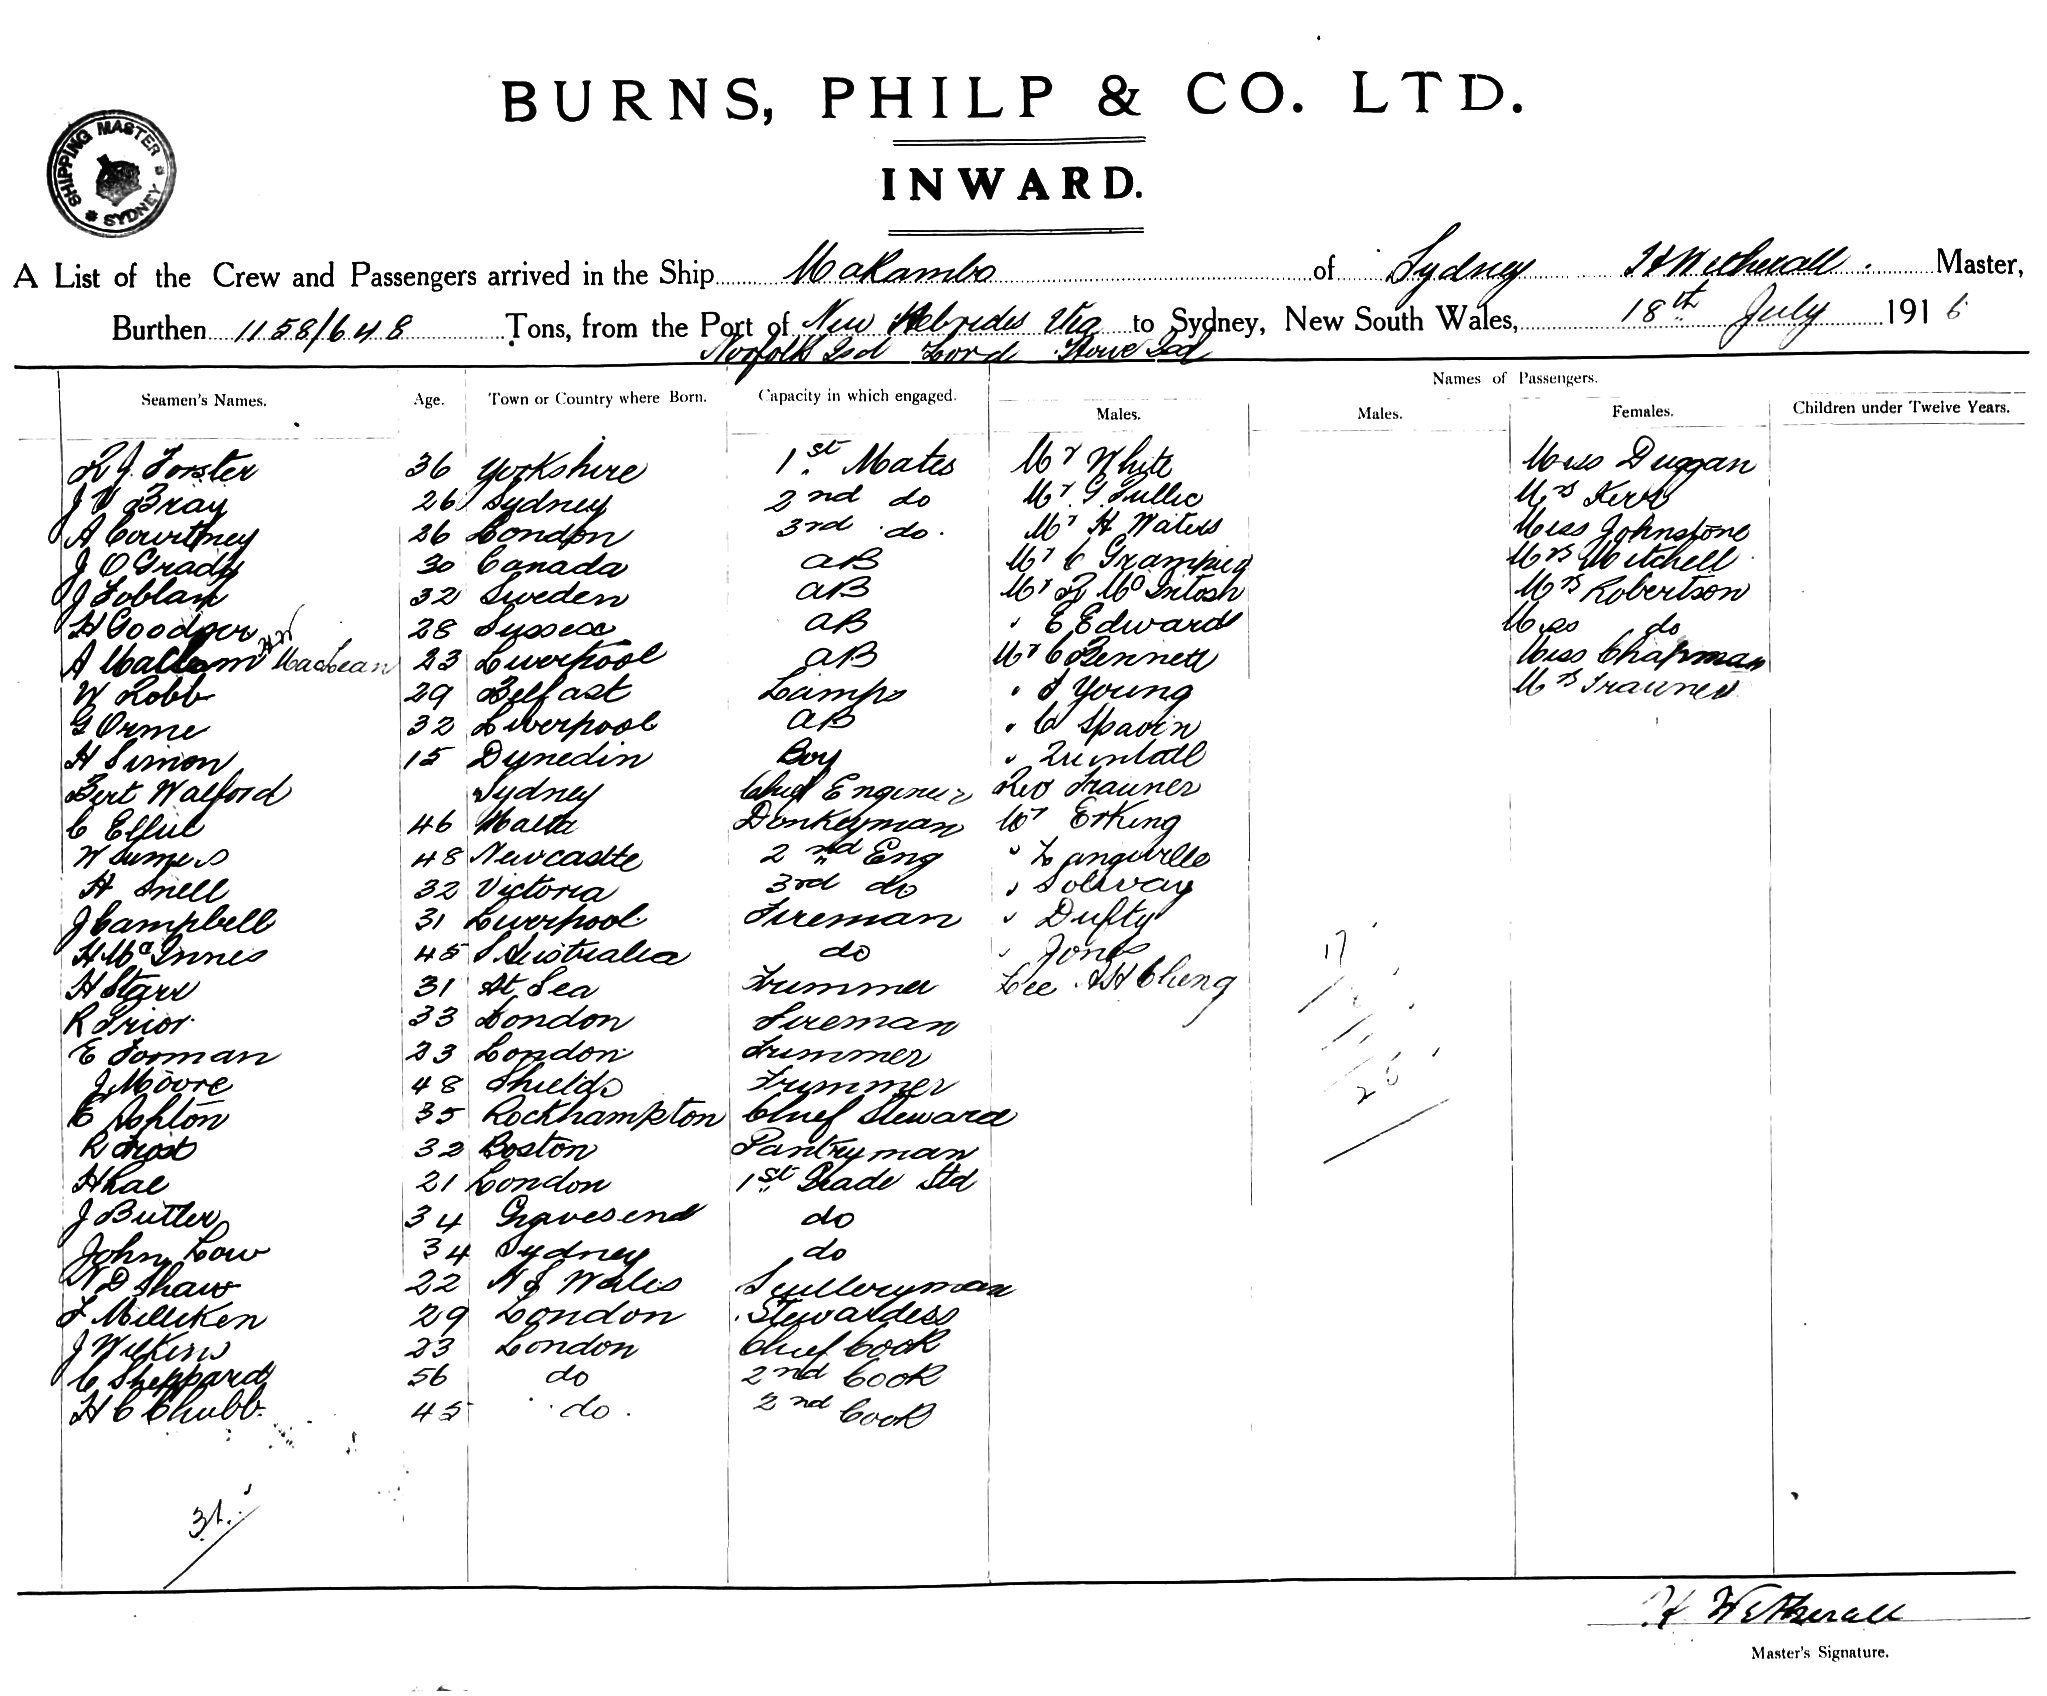 BURNS, PHILP & CO. LTD.
INWARD.
SHIPPING MASTER SYDNEY
A List of the Crew and Passengers arrived in the Ship Makambo of Sydney H Wetherall. Master,
Burthen 1158/648 Tons, from the Port of New Hebrides Via to Sydney, New South Wales, 18th July 1916
Norfolk Isd Lord Howe Isd
Names of Passengers.
Seamen's Names. Age. Town or Country where Born. Capacity in which engaged. Males. Males. Females. Children under Twelve Years.
R J Forster 36 Yorkshire 1st Mates Mr White Miss Duggan
J V Bray 26 Sydney 2nd do Mr G Tullic Mrs Kerr
A Courtney 26 London 3rd do. Mr H Waters Miss Johnstone
J O Grady 30 Canada AB Mr C Mrs Mitchell
J 32 Sweden AB Mr McIntosh Mrs Robertson
H Goodger 28 Sussex AB " E Edward Miss do
A MacLean 23 Liverpool AB Mr C Bennett Miss Chapman
W Robb 29 Belfast Lamps " J Young Mrs Trauner
G Orme 32 Liverpool AB " C Spavin
H Simon 15 Dunedin Boy " Quintall
Bert Walford Sydney Chief Engineer Rev Trauner
C Elful 46 Malta Donkeyman Mr Erking
W Sumers 48 Newcastle 2nd Eng " Langville
H Snell 32 Victoria 3rd do " Solway
J Campbell 31 Liverpool Fireman " Dufty
H McInnes 45 S Australia do " Jones
H Starr 31 At Sea Trummer Lee Ah Cheng
R Prior 33 London Fireman
E Forman 23 London Trummer
J Moore 48 Shields Trummer
E Ashton 35 Rockhampton Chief Steward
R Frost 32 Boston Pantryman
H Lae 21 London 1st Grade Std
J Butler 34 Gravesend do
John Low 34 Sydney do
W D Shaw 22 N S Wales Sculleryman
F Milliken 29 London Stewardess
J Wilkins 23 London Chief Cook
C Sheppard 56 do 2nd Cook
H C Chubb. 45 do. 2nd Cook
17
31.
H Wetherall
Master's Signature.